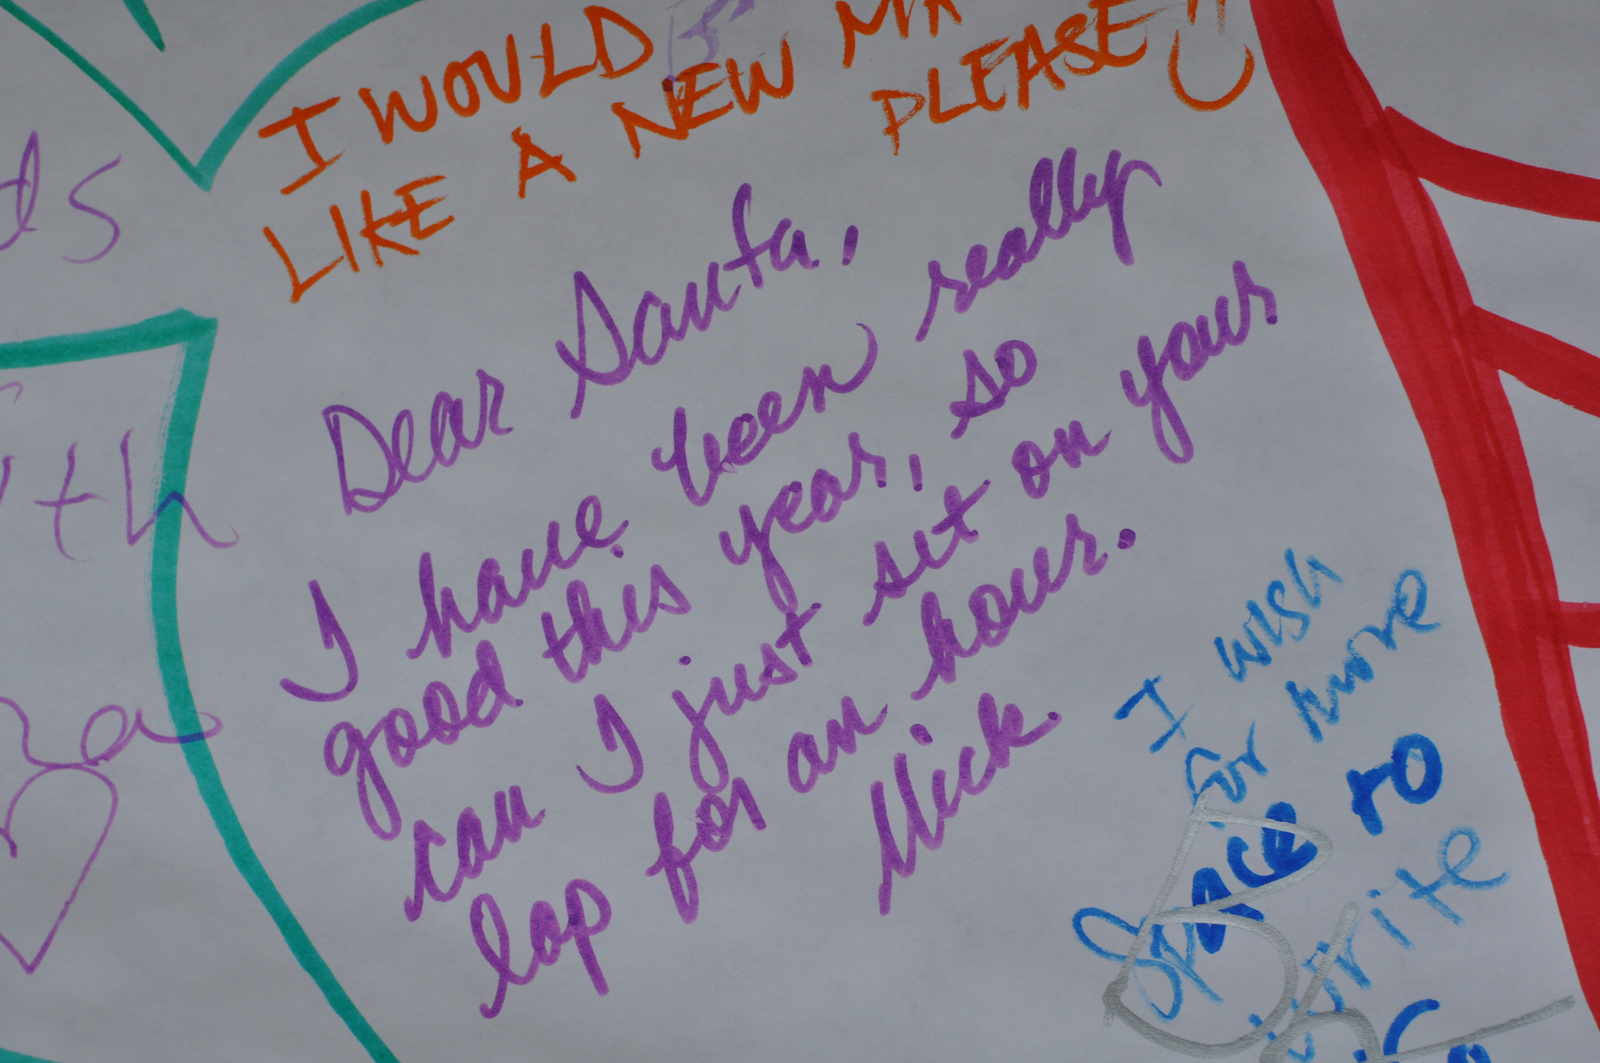 I WOULD
LIKE A NEW
PLEASE
Dear Santa,
I have been really
good this year, so
can I just set on your
lap for an hour.
Mick.
I wish
for more
Space to
write
ds
ith